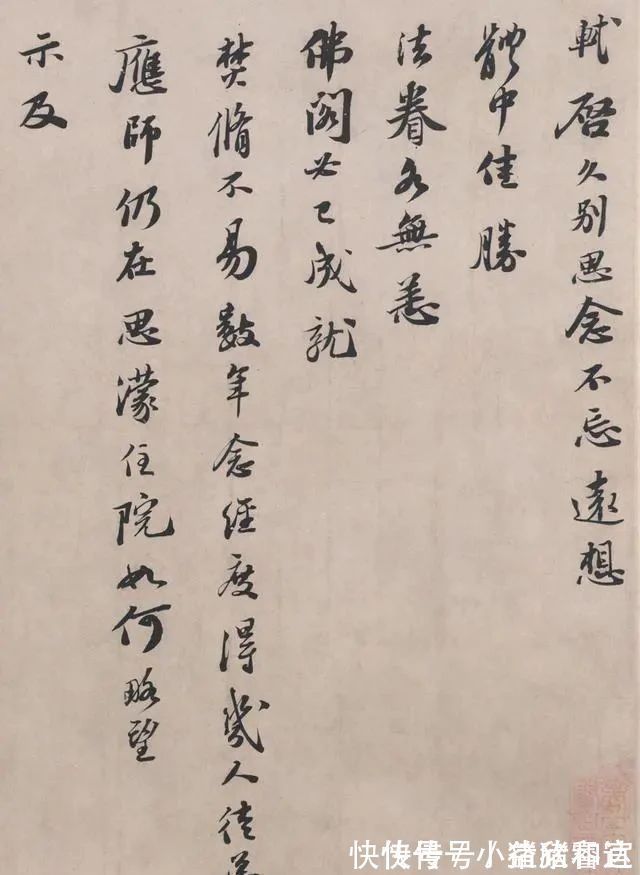 軾啓久別思念不忘遠想
體中佳勝
法眷各無恙
佛閣必已成就
焚脩不易數年念經度得幾人徒弟
應師仍在思濛住院如何略望
示及
快传号